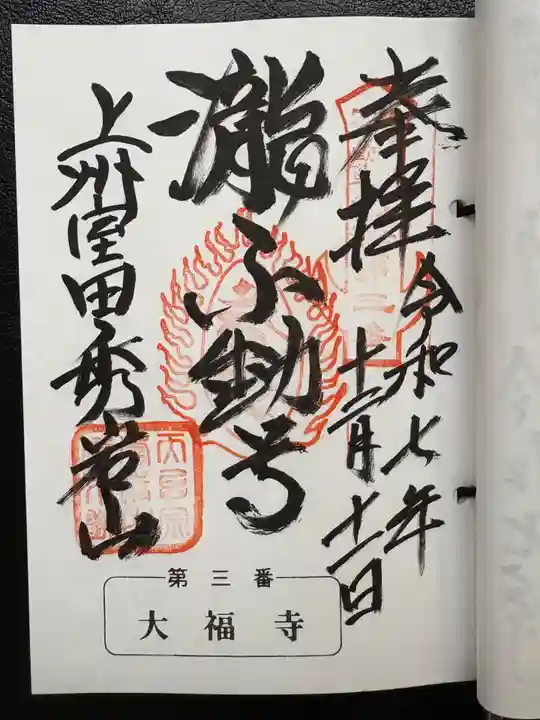 奉拝
令和七年
十二月十一日
瀧不動尊
上州室田
岩山
第三番
大福寺